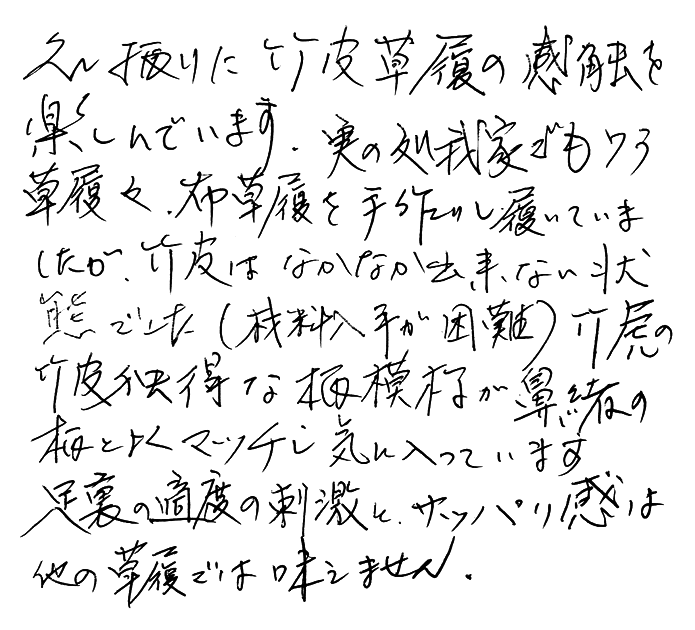 久し振りに竹皮草履の感触を
楽しんでいます．実の処我家でもワラ
草履や、布草履を手作りし履いていま
したが、竹皮はなかなか出来ない状
態でした（材料入手が困難）竹虎の
竹皮独得な柄模様が鼻緒の
柄とよくマッチし気に入っています
足裏の適度の刺激と、サッパリ感は
他の草履では味えません．